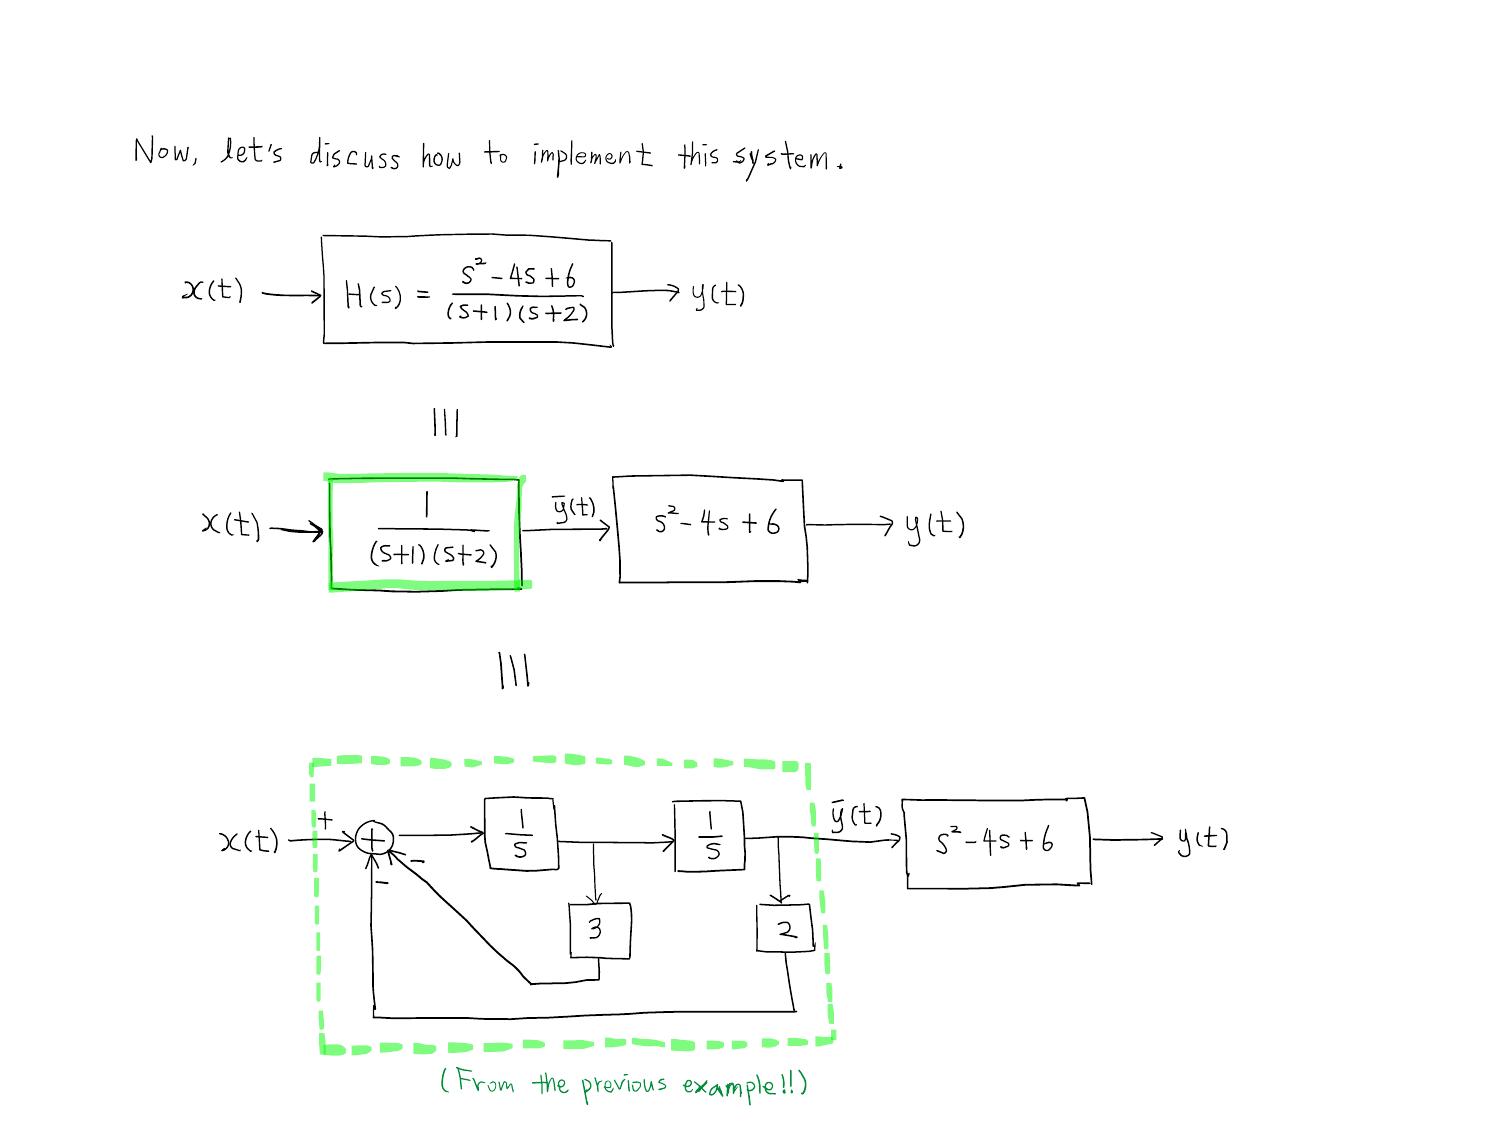 Now, let's discuss how to implement this system.
x(t) → H(s) = (s² - 4s + 6) / ((s+1)(s+2)) → y(t)
|||
x(t) → 1 / ((s+1)(s+2)) → ȳ(t) → s² - 4s + 6 → y(t)
|||
x(t) + + 1/s 1/s ȳ(t) s² - 4s + 6 y(t)
- -
3 2
(From the previous example!!)